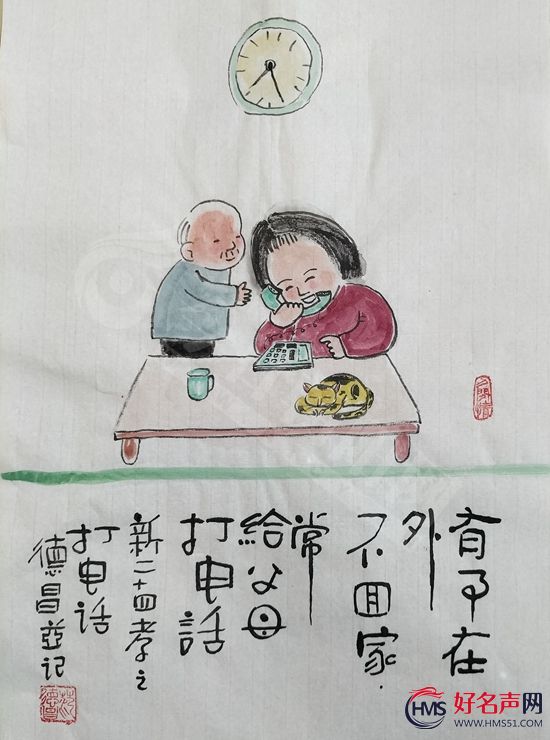 有子在
外
不回家
常
給父母
打电話
新二十四孝之
打电话
德昌並记
HMS 好名声网
WWW.HMS51.COM